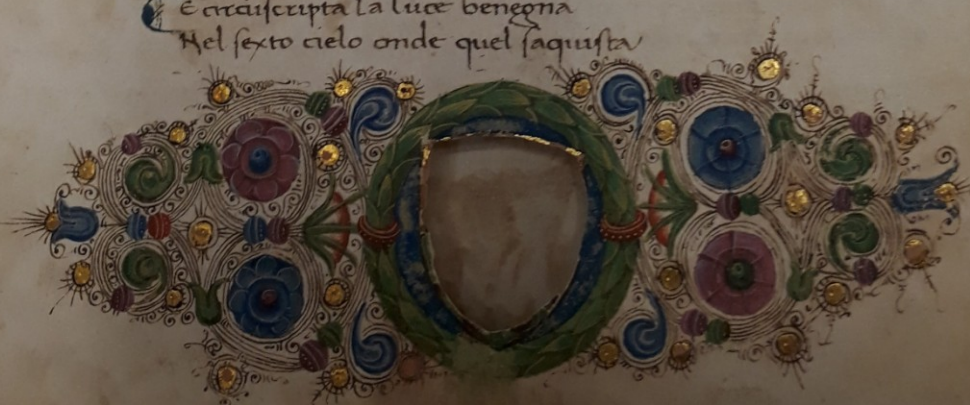 E circuscripta la luce benegna
Nel sexto cielo onde quel saquista